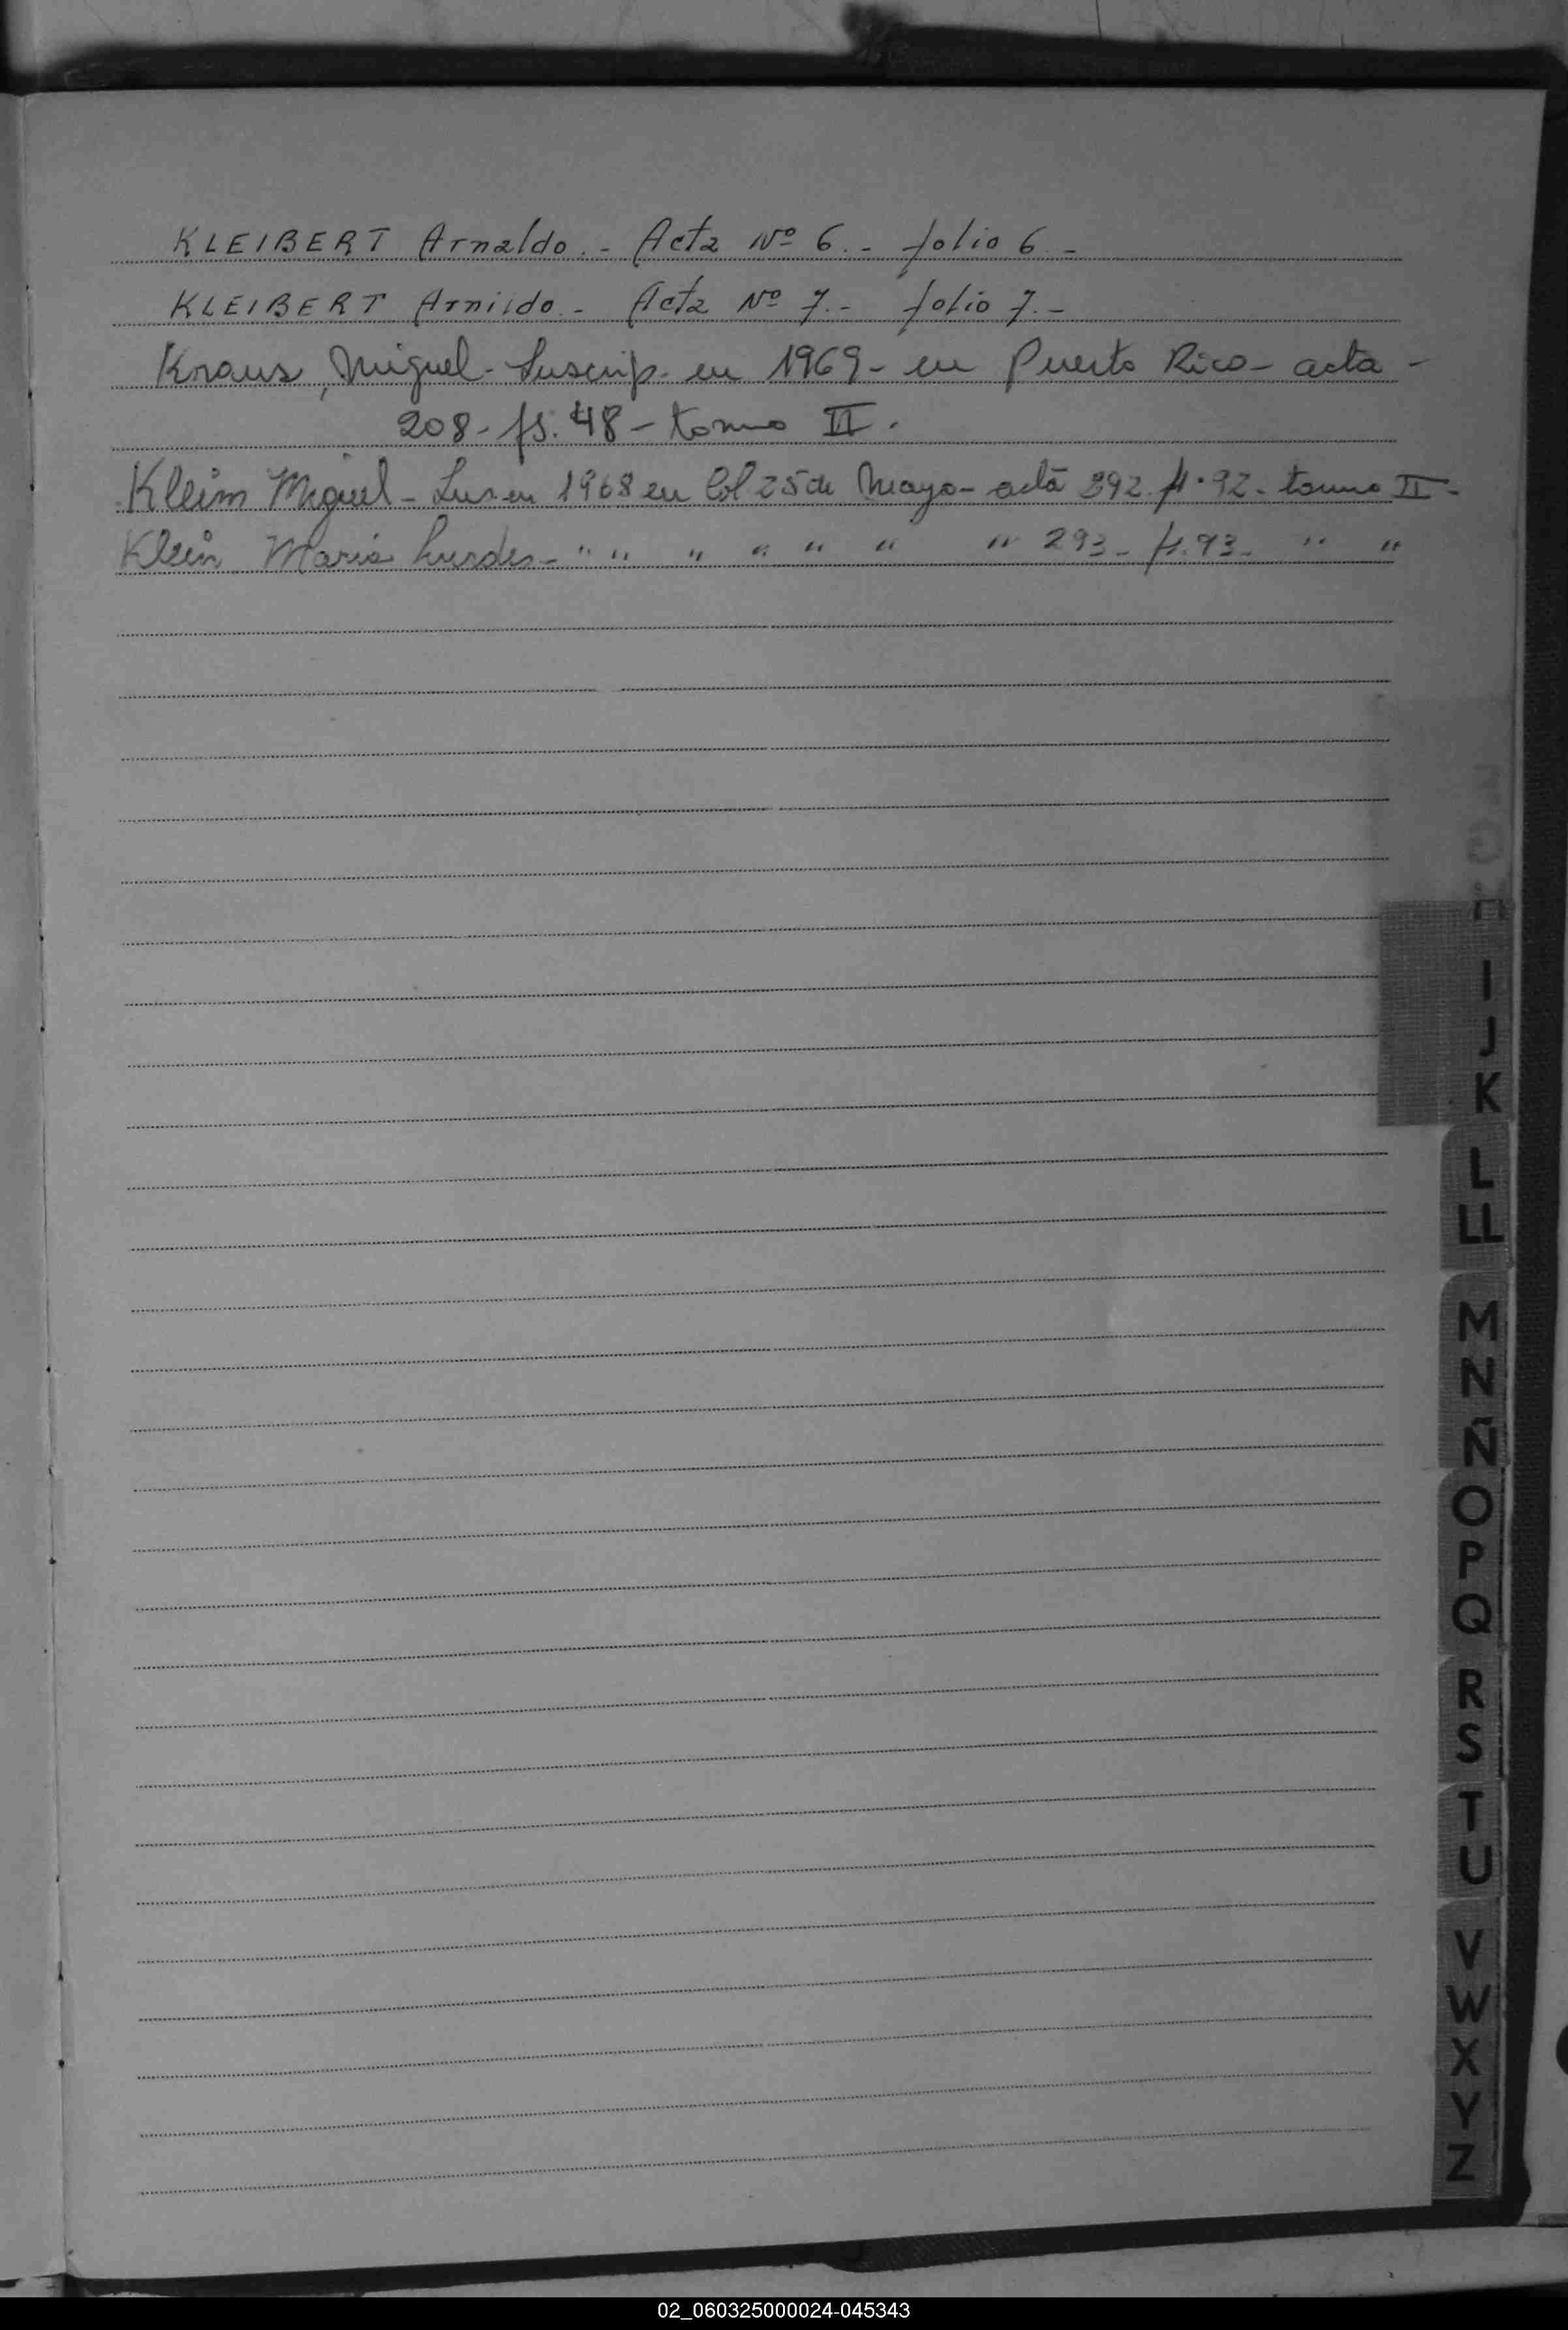 KLEIBERT Arnaldo.- Acta Nº 6.- folio 6.-
KLEIBERT Arnildo.- Acta Nº 7.- folio 7.-
Kraus, Miguel- Inscrip. en 1969- en Puerto Rico- acta-
208- fs. 48- tomo II.
Kleim Miguel- Ins en 1968 en Col 25 de Mayo- acta 292 fs. 92- tomo II-
Klein Maria Lurdes- " " " " " " " 293- fs. 93- " "
G
H
I
J
K
L
LL
M
N
Ñ
O
P
Q
R
S
T
U
V
W
X
Y
Z
02_060325000024-045343